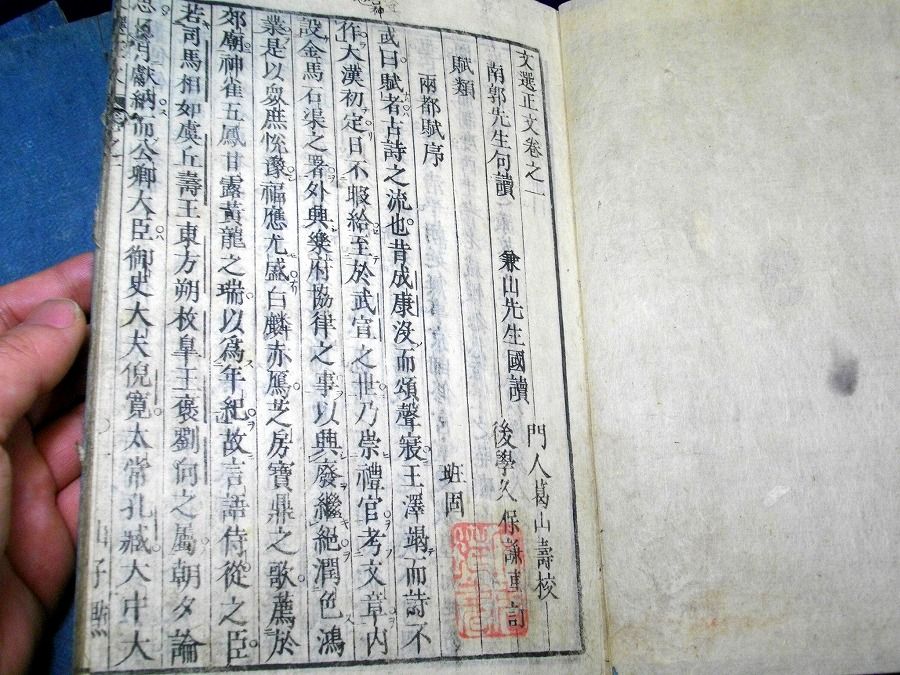 文選正文卷之一
南郭先生句讀 兼山先生國讀 門人葛山壽校
後學久保謙重訂
賦類
兩都賦序 班固
或曰賦者古詩之流也昔成康沒而頌聲寢王澤竭而詩不
作大漢初定日不暇給至於武宣之世乃崇禮官考文章内
設金馬石渠之署外興樂府協律之事以興廢繼絕潤色鴻
業是以眾庶恱豫福應尤盛白麟赤鴈芝房寶鼎之歌薦於
郊廟神雀五鳳甘露黃龍之瑞以爲年紀故言語侍從之臣
若司馬相如虞丘壽王東方朔枚皐王褒劉向之屬朝夕論
思日月獻納而公卿大臣御史大夫倪寬太常孔臧太中大
山子點